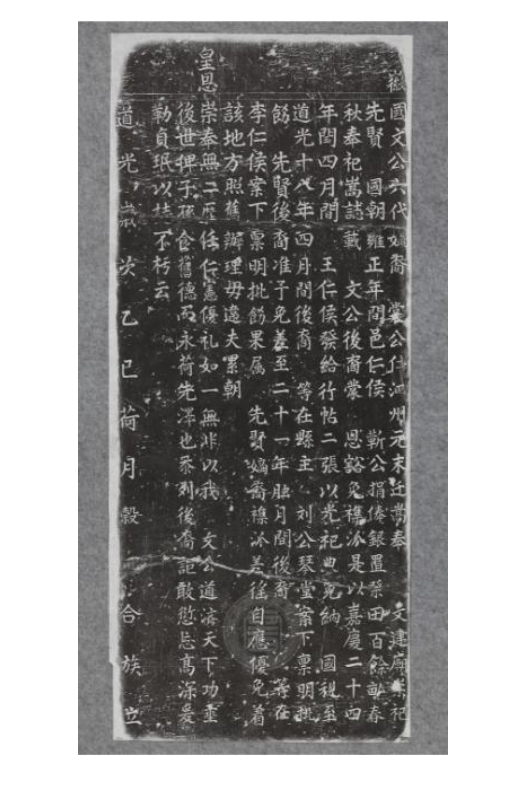 徽國文公六代嫡裔 裳公仕泗州元末迁嵩奉 文建廟祭祀
先賢 國朝雍正年間邑仁侯 靳公捐俸銀置祭田百餘畝春
秋奉祀嵩誌載 文公後裔蒙 恩豁免襍派是以嘉慶二十四
年閏四月間 王仁侯發給行帖二張以光祀典免納 國稅至
道光十八年四月間後裔 等在縣主 刘公琴堂案下禀明批
飭 先賢後裔准予免差至二十一年 月間後裔 等在
李仁侯案下 禀明批飭果属 先賢嫡裔襍派差徭自應優免着
該地方照舊辦理毋違夫累朝
皇恩崇奉無二歷任仁憲優礼如一無非以我 文公道濟天下功垂
後世俾子孫食舊德而永荷先澤也忝列後裔詎敢愆忘高深爰
勒貞珉以誌不朽云
道光歲次乙巳荷月穀 合族立